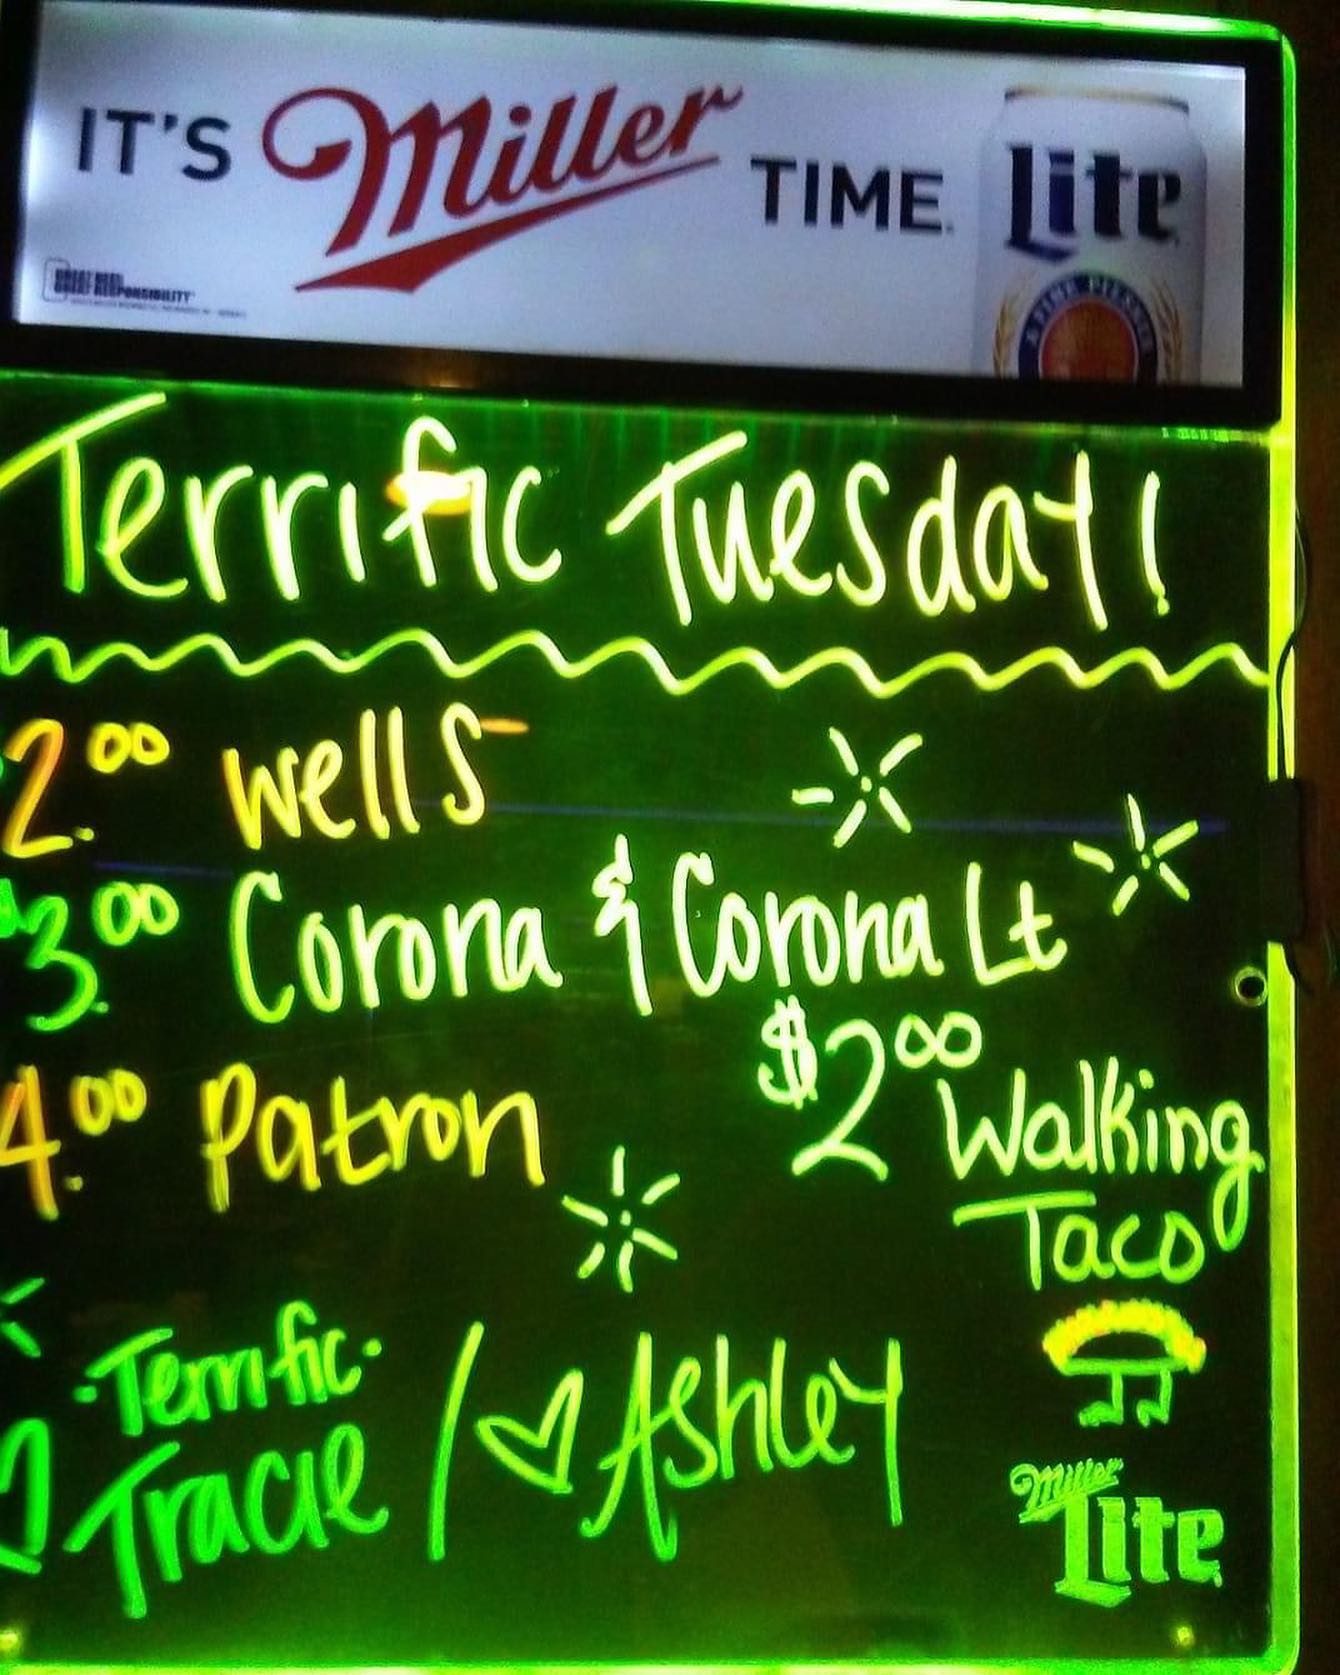 IT'S Miller TIME. Lite
GREAT BEER.
GREAT RESPONSIBILITY
A FINE PILSNER
Terrific Tuesday!
2.00 wells
$3.00 Corona & Corona Lt
4.00 Patron
$2.00 Walking
Taco
Terrific
Tracie / Ashley
Miller
Lite